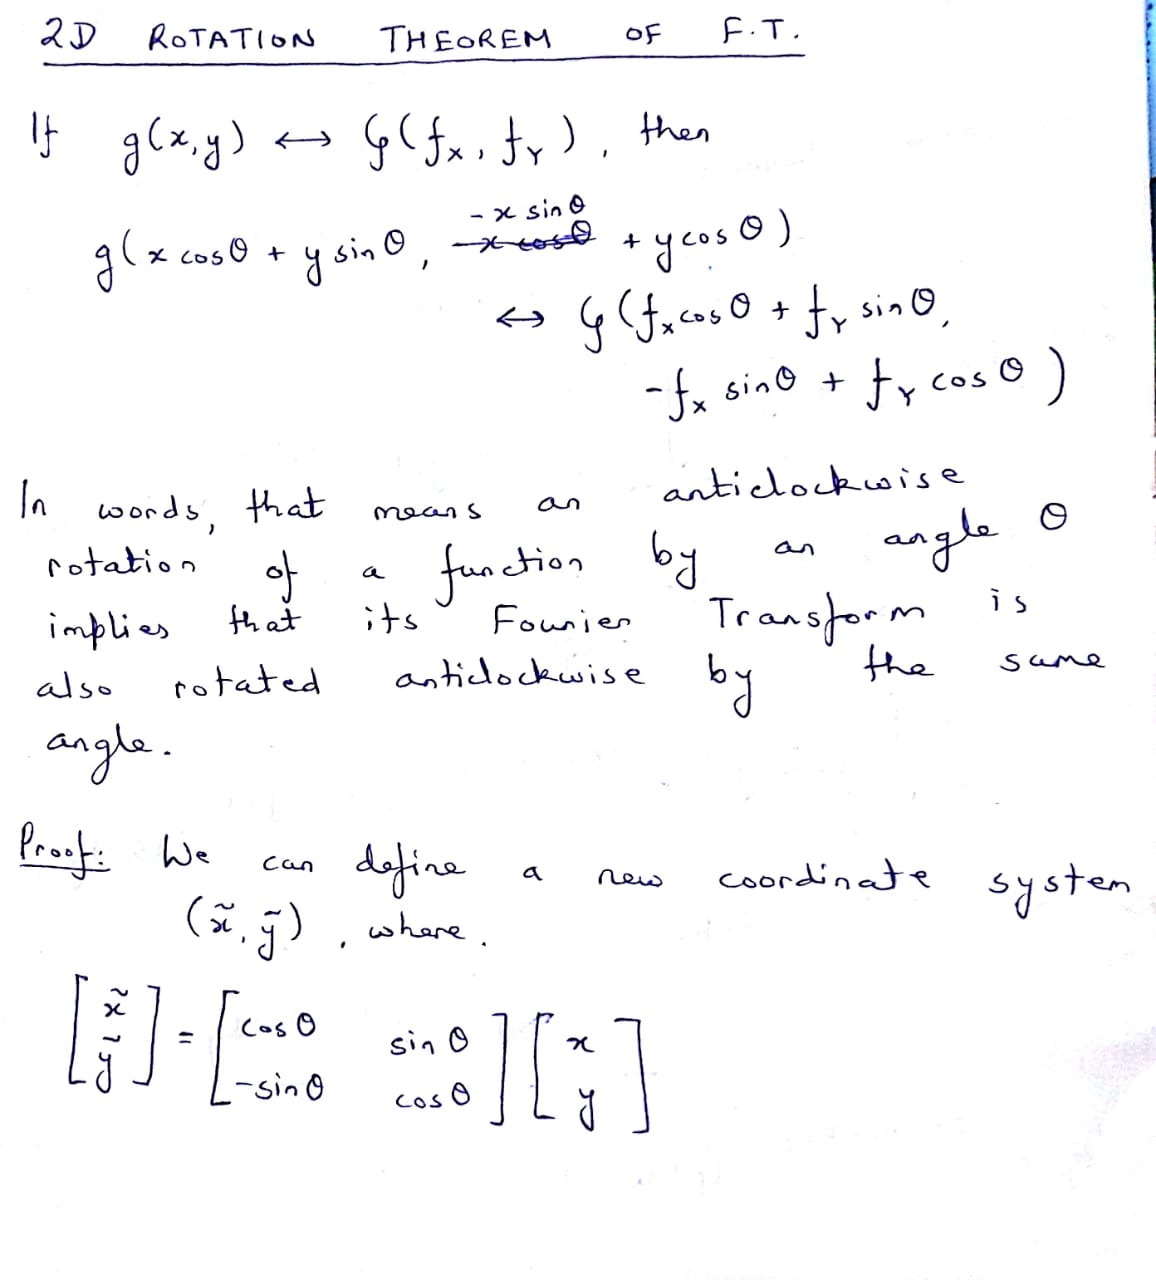 2D ROTATION THEOREM OF F.T.
If g(x,y) ↔ G(fx, fY), then
g(x cosθ + y sinθ, -x sinθ + y cosθ)
↔ G(fx cosθ + fY sinθ,
-fx sinθ + fY cosθ)
In words, that means an anticlockwise
rotation of a function by an angle θ
implies that its Fourier Transform is
also rotated anticlockwise by the same
angle.
Proof: We can define a new coordinate system
(x̃, ỹ), where.
[x̃ ỹ] = [cosθ sinθ -sinθ cosθ][x y]